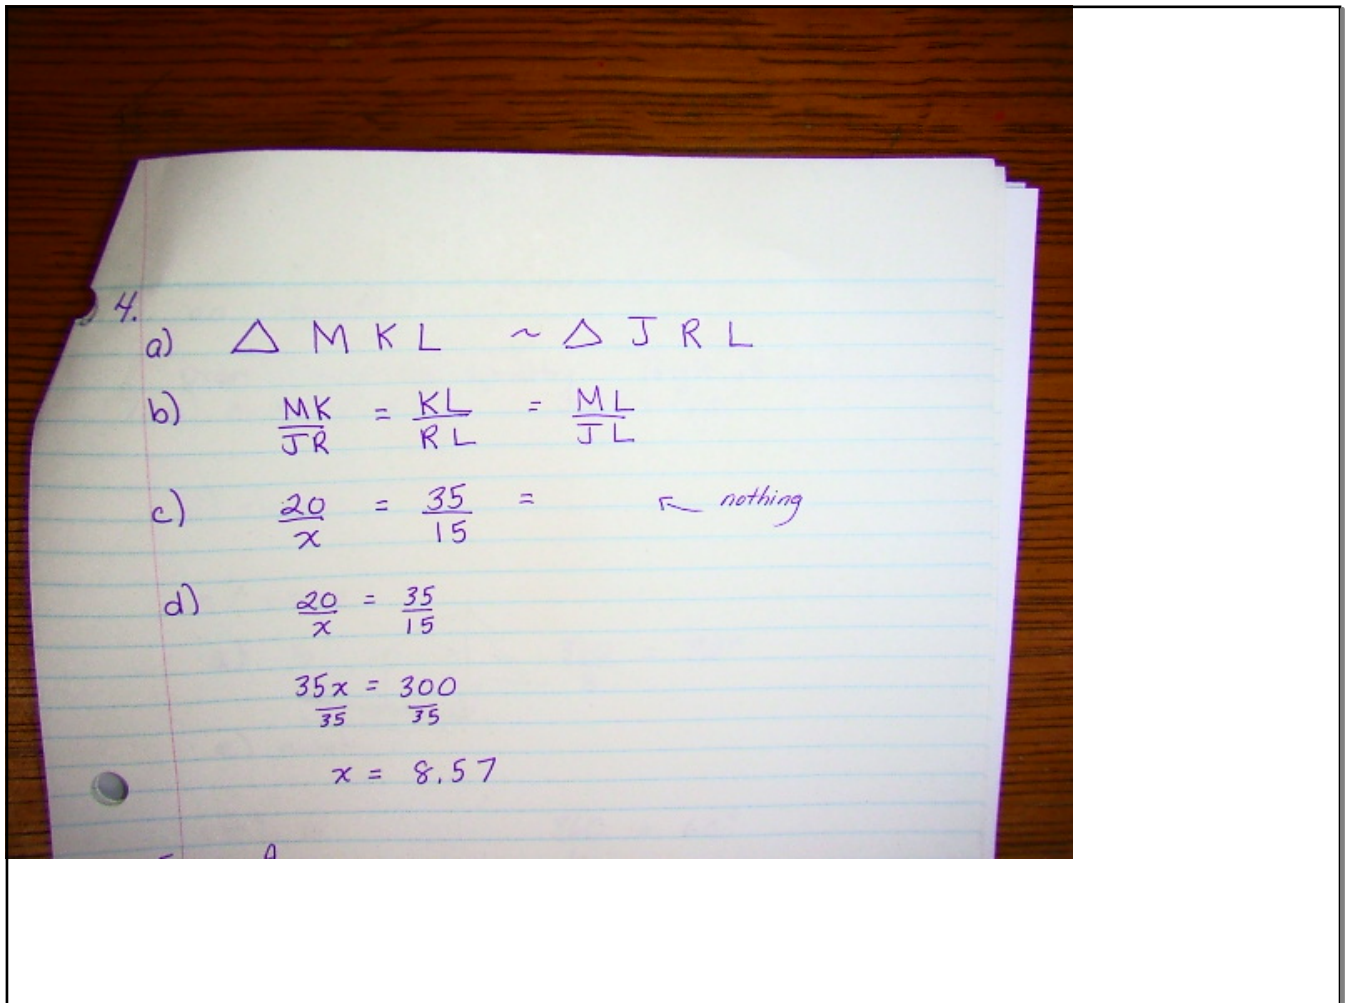 4.
a) △ M K L ~ △ J R L
b) MK/JR = KL/RL = ML/JL
c) 20/x = 35/15 = ← nothing
d) 20/x = 35/15
35x/35 = 300/35
x = 8.57